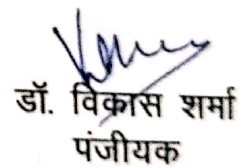 डॉ. विकास शर्मा
पंजीयक